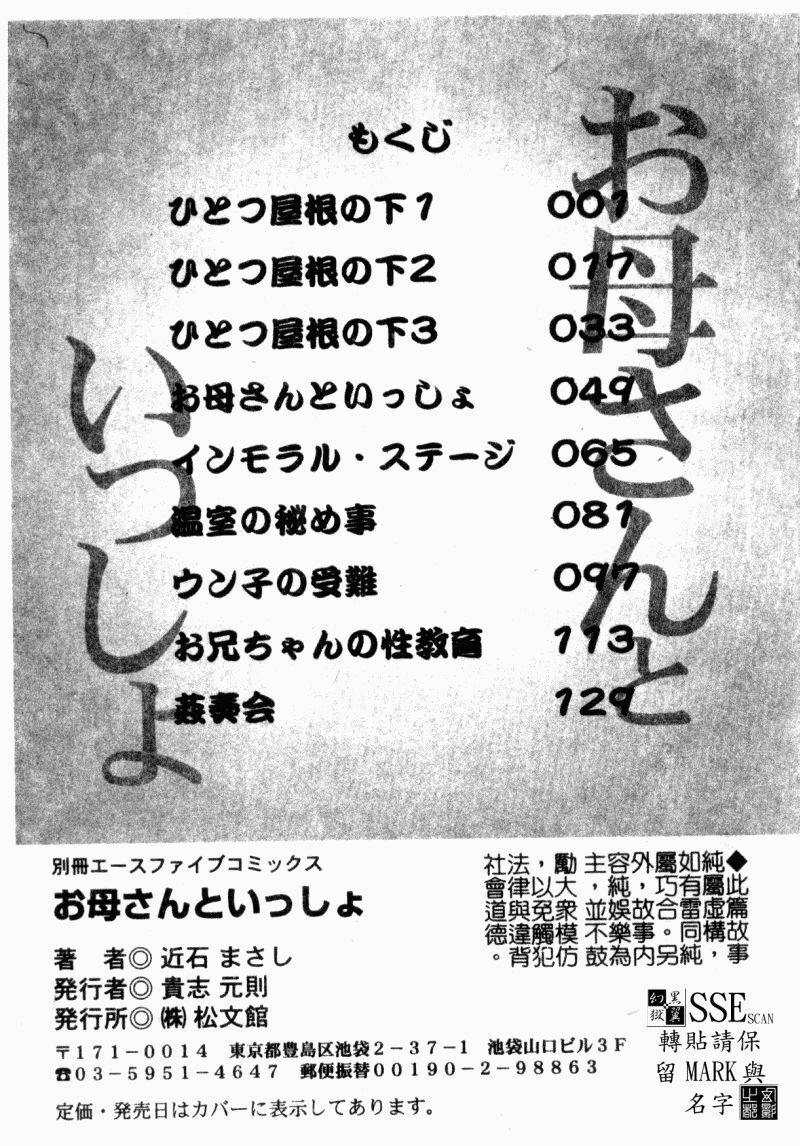 お母さんと
いっしょ
もくじ
ひとつ屋根の下1 001
ひとつ屋根の下2 017
ひとつ屋根の下3 033
お母さんといっしょ 049
インモラル・ステージ 065
温室の秘め事 081
ウン子の受難 097
お兄ちゃんの性教育 113
姦奏会 129
別冊エースファイブコミックス
お母さんといっしょ
著 者◎ 近石 まさし
発行者◎ 貴志 元則
発行所◎ ㈱ 松文館
〒171-0014 東京都豊島区池袋2-37-1 池袋山口ビル3F
☎03-5951-4647 郵便振替00190-2-98863
定価・発売日はカバーに表示してあります。
◆此篇故事
純屬虛構,
如有雷同純
屬巧合。另
外,故事內
容純娛樂為
主,並不鼓
勵大眾模仿
,以免觸犯
法律與違背
社會道德。
幻獄 黑翼 SSE SCAN
轉貼請保
留 MARK 與
名字